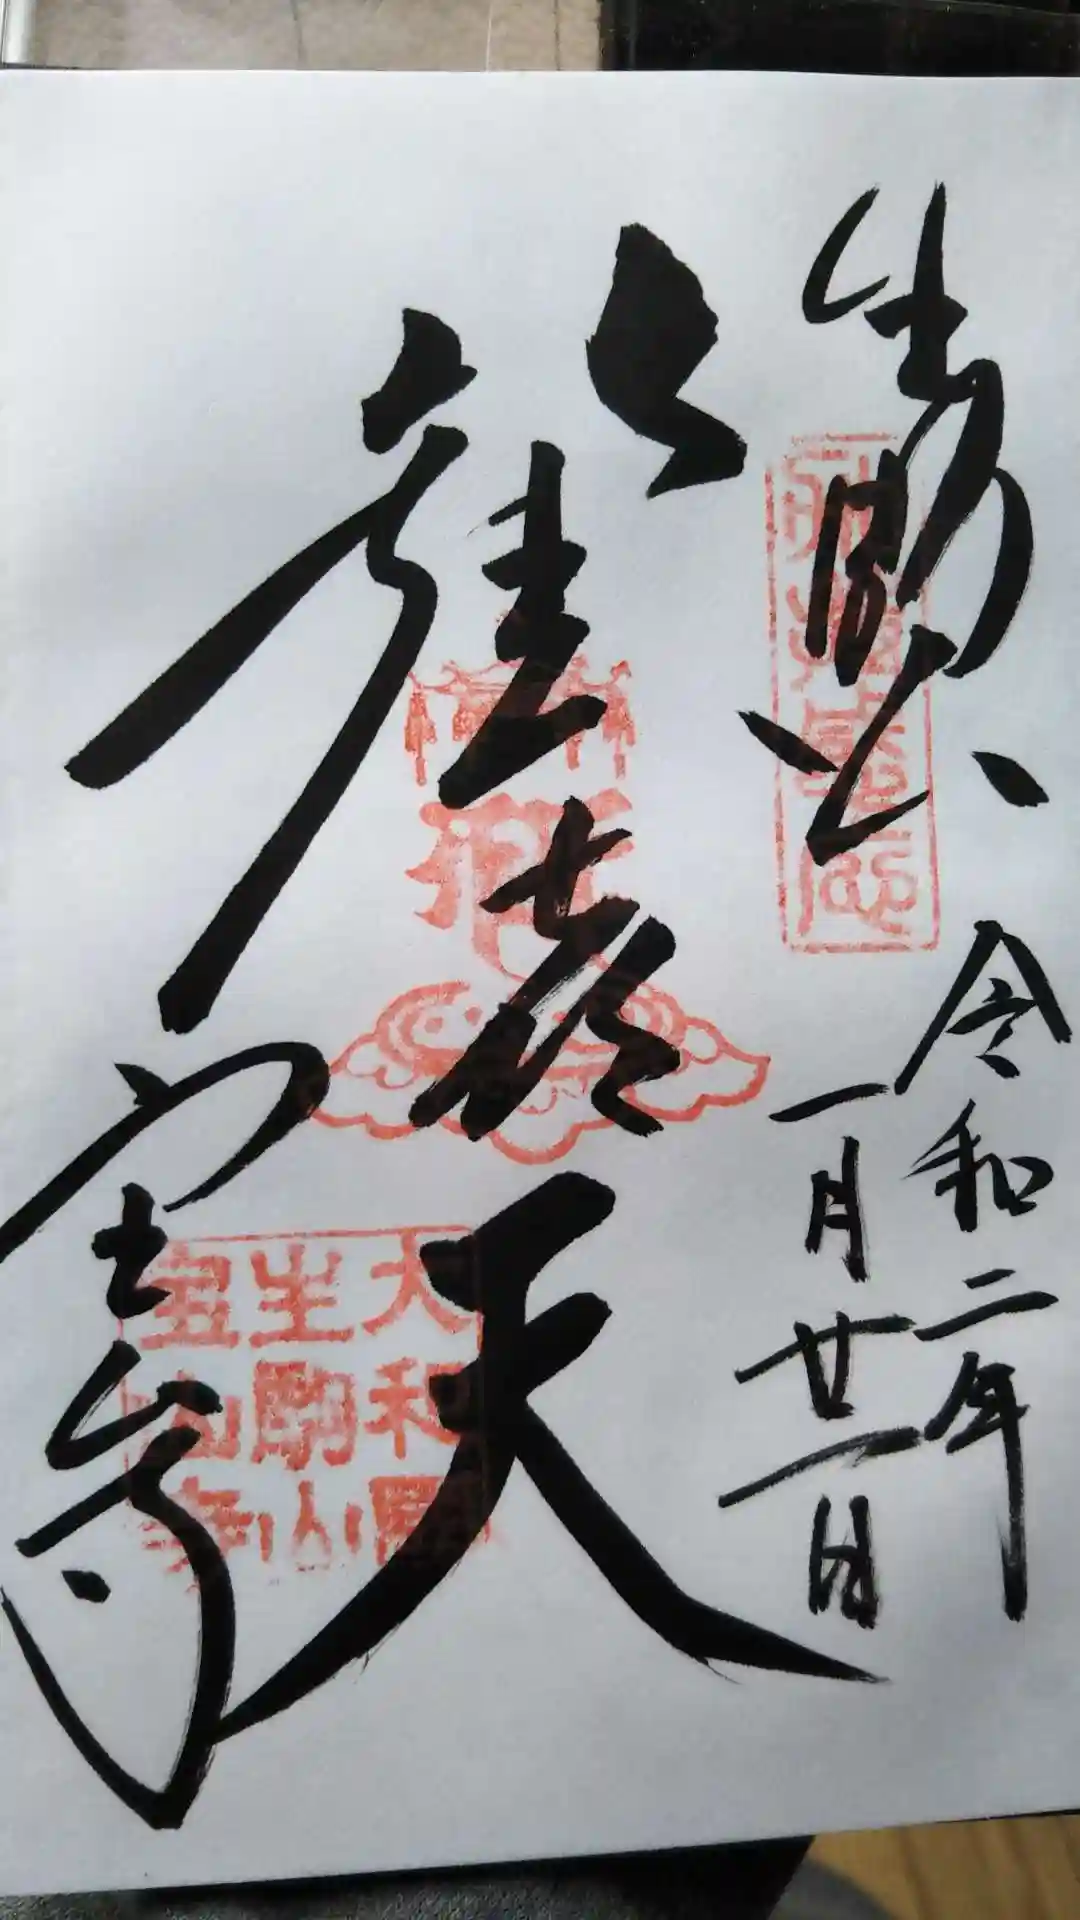 生駒山
令和二年
一月廿一日
歡喜天
宝山寺
大和國
生駒山
宝山寺